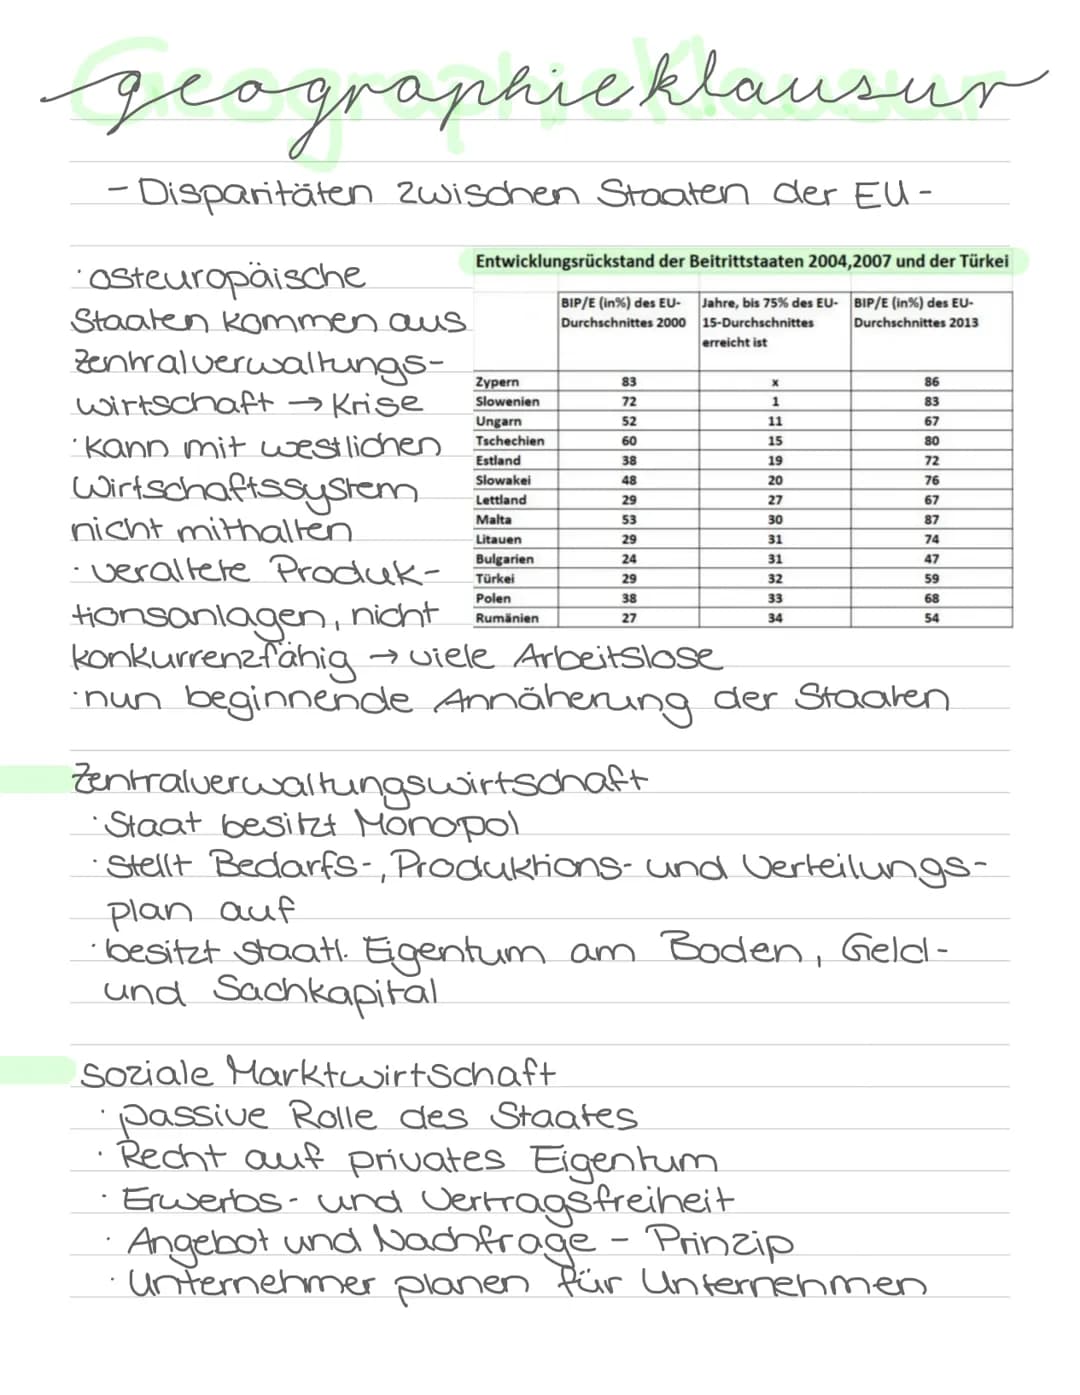 Geographieklausur
geographieklausur
- Disparitäten zwischen Staaten der EU -
· osteuropäische
Staaten kommen aus
Zentralverwaltungs-
wirtschaft → Krise
· kann mit westlichen
Wirtschaftssystem
nicht mithalten
· veraltete Produk-
tionsanlagen, nicht
konkurrenzfähig → viele Arbeitslose
· nun beginnende Annäherung der Staaten
Entwicklungsrückstand der Beitrittstaaten 2004,2007 und der Türkei
BIP/E (in%) des EU- Jahre, bis 75% des EU- BIP/E (in%) des EU-
Durchschnittes 2000 15-Durchschnittes Durchschnittes 2013
erreicht ist
Zypern 83 x 86
Slowenien 72 1 83
Ungarn 52 11 67
Tschechien 60 15 80
Estland 38 19 72
Slowakei 48 20 76
Lettland 29 27 67
Malta 53 30 87
Litauen 29 31 74
Bulgarien 24 31 47
Türkei 29 32 59
Polen 38 33 68
Rumänien 27 34 54
Zentralverwaltungswirtschaft
· Staat besitzt Monopol
· stellt Bedarfs-, Produktions- und Verteilungs-
plan auf
· besitzt staatl. Eigentum am Boden, Geld-
und Sachkapital
soziale Marktwirtschaft
· passive Rolle des Staates
· Recht auf privates Eigentum
· Erwerbs- und Vertragsfreiheit
· Angebot und Nachfrage - Prinzip
· Unternehmer planen für Unternehmen